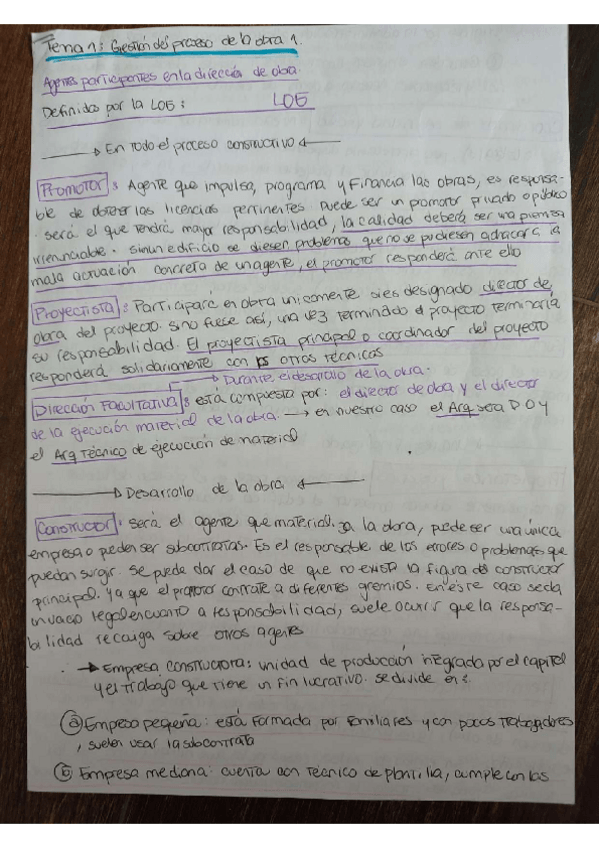 Tema 1: Gestión del proceso de la obra 1.
Agentes participantes en la dirección de obra.
Definidos por la LOE: LOE
En todo el proceso constructivo
Promotor: Agente que impulsa, programa y financia las obras, es responsa-
ble de obtener las licencias pertinentes puede ser un promotor privado o público
será el que tendrá mayor responsabilidad, la calidad deberá ser una premisa
irrenunciable. si en un edificio se diesen problemas que no se pudiesen achacar a la
mala actuación concreta de un agente, el promotor responderá ante ello
Proyectista: Participará en obra unicamente si es designado director de
obra del proyecto. sino fuese así, una vez terminado el proyecto terminaría
su responsabilidad. El proyectista principal o coordinador del proyecto
responderá solidariamente con los otros técnicos
Durante el desarrollo de la obra.
Dirección Facultativa: está compuesta por: el director de obra y el director
de la ejecución material de la obra. → en nuestro caso el Arq sera DO y
el Arq Técnico de ejecución de material
Desarrollo de la obra
Constructor: será el agente que materializa la obra, puede ser una única
empresa o pueden ser subcontratas. Es el responsable de los errores o problemas que
puedan surgir. se puede dar el caso de que no exista la figura del constructor
principal. ya que el promotor contrate a diferentes gremios. en este caso se da
un vacio legal en cuanto a responsabilidad, suele ocurrir que la responsa-
bilidad recaiga sobre otros agentes
→ Empresa constructora: unidad de producción integrada por el capital
y el trabajo que tiene un fin lucrativo. se divide en:
a Empresa pequeña: está formada por familiares y con pocos trabajadores
, suelen usar la subcontrata
b Empresa mediana: cuenta con técnico de plantilla, cumple con las